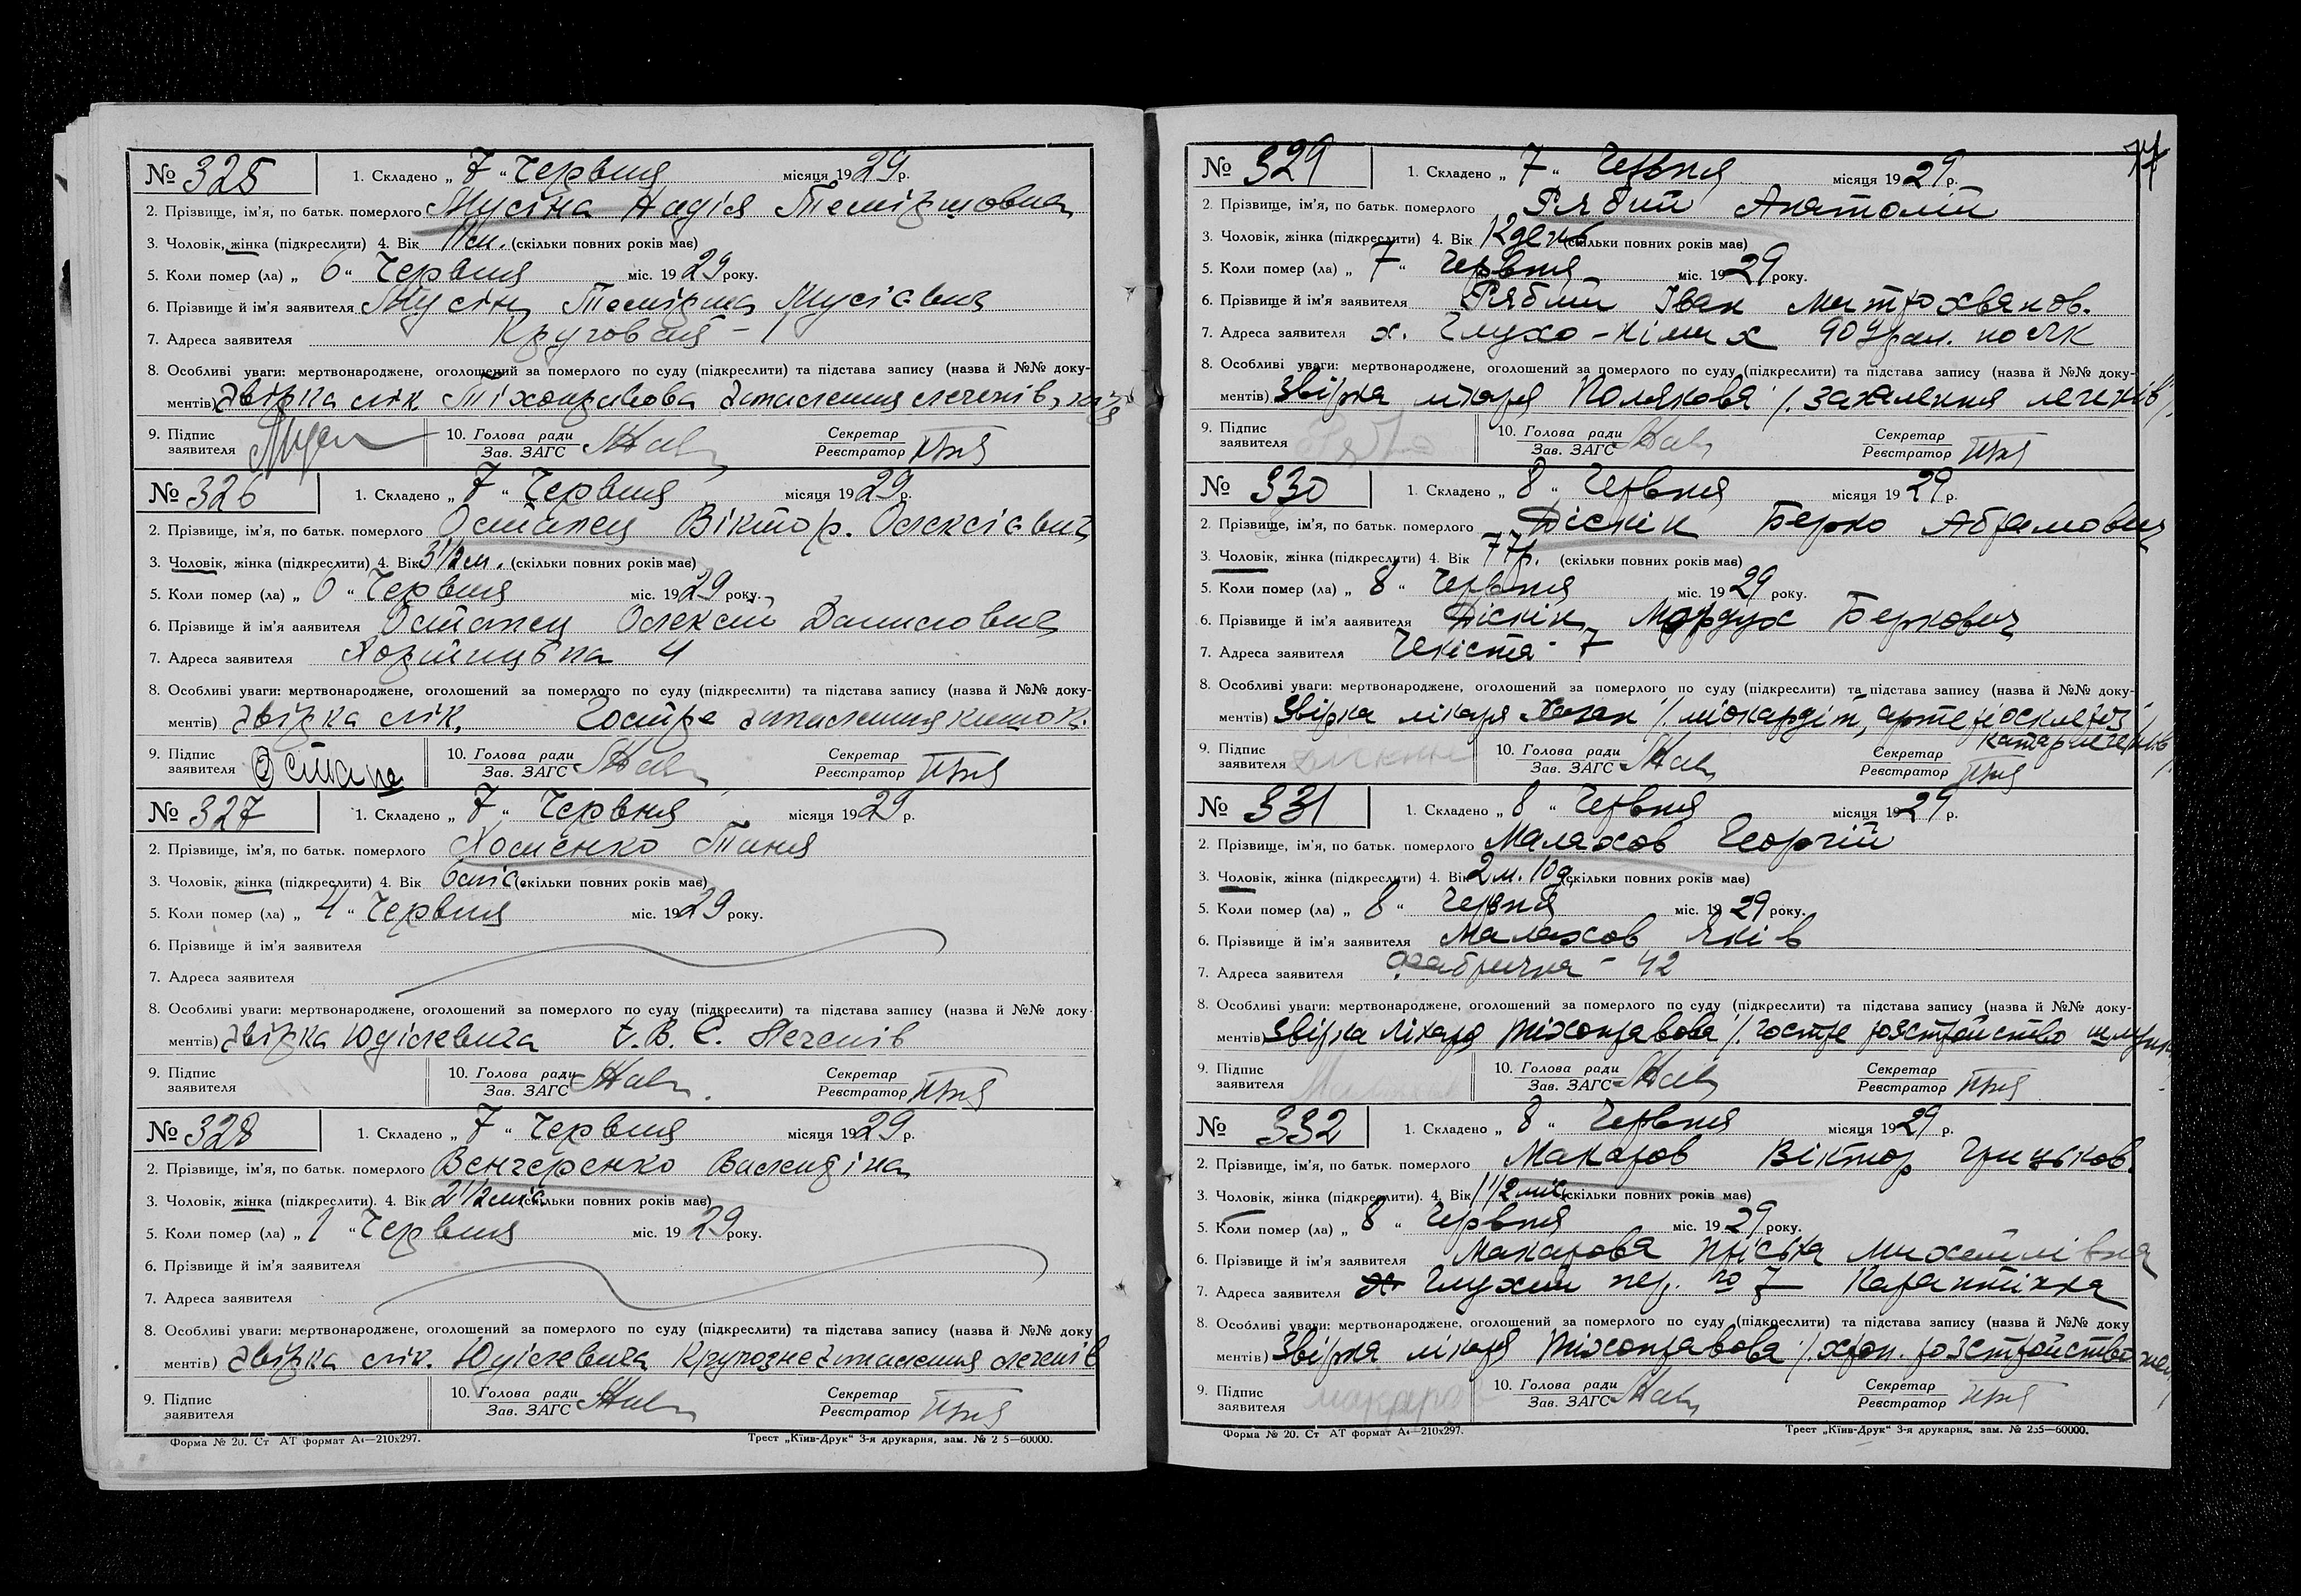 № 325 1. Складено „ 7 “ Червня місяця 1929 р.
2. Прізвище, ім'я, по батьк. померлого Мусіна Надія
3. Чоловік, жінка (підкреслити) 4. Вік 11 м. (скільки повних років має)
5. Коли помер (ла) „ 6 “ Червня міс. 1929 року.
6. Прізвище й ім'я заявителя Мусін
7. Адреса заявителя Круговая - 1
8. Особливі уваги: мертвонароджене, оголошений за померлого по суду (підкреслити) та підстава запису (назва й №№ доку-
ментів) Звірка лік. Тіхонравова Запалення легенів,
9. Підпис заявителя 10. Голова ради Зав. ЗАГС Секретар Реєстратор
№ 326 1. Складено „ 7 “ Червня місяця 1929 р.
2. Прізвище, ім'я, по батьк. померлого Остапец Віктор. Олексієвич
3. Чоловік, жінка (підкреслити) 4. Вік 3 1/2 м. (скільки повних років має)
5. Коли помер (ла) „ 6 “ Червня міс. 1929 року.
6. Прізвище й ім'я заявителя Остапец Олексій Данилович
7. Адреса заявителя 4
8. Особливі уваги: мертвонароджене, оголошений за померлого по суду (підкреслити) та підстава запису (назва й №№ доку-
ментів) Звірка лік. Гостре запалення кишок.
9. Підпис заявителя Остапе 10. Голова ради Зав. ЗАГС Секретар Реєстратор
№ 327 1. Складено „ 7 “ Червня місяця 1929 р.
2. Прізвище, ім'я, по батьк. померлого Хоменко Таня
3. Чоловік, жінка (підкреслити) 4. Вік 6 міс. (скільки повних років має)
5. Коли помер (ла) „ 4 “ Червня міс. 1929 року.
6. Прізвище й ім'я заявителя
7. Адреса заявителя
8. Особливі уваги: мертвонароджене, оголошений за померлого по суду (підкреслити) та підстава запису (назва й №№ доку-
ментів) Звірка Юділевича Т. В. С. легенів
9. Підпис заявителя 10. Голова ради Зав. ЗАГС Секретар Реєстратор
№ 328 1. Складено „ 7 “ Червня місяця 1929 р.
2. Прізвище, ім'я, по батьк. померлого Венгеренко Валендіна
3. Чоловік, жінка (підкреслити). 4. Вік 2 1/2 міс (скільки повних років має)
5. Коли помер (ла) „ 1 “ Червня міс. 1929 року.
6. Прізвище й ім'я заявителя
7. Адреса заявителя
8. Особливі уваги: мертвонароджене, оголошений за померлого по суду (підкреслити) та підстава запису (назва й №№ доку
ментів) Звірка лік. Юділевича Крупозне Запалення легенів
9. Підпис заявителя 10. Голова ради Зав. ЗАГС Секретар Реєстратор
Форма № 20. Ст АТ формат А4—210х297. Трест „Київ-Друк“ 3-я друкарня, зам. № 2 5—60000.
77
№ 329 1. Складено „ 7 “ Червня місяця 1929 р.
2. Прізвище, ім'я, по батьк. померлого Рябий Анатолій
3. Чоловік, жінка (підкреслити) 4. Вік 12 день (скільки повних років має)
5. Коли помер (ла) „ 7 “ Червня міс. 1929 року.
6. Прізвище й ім'я заявителя Рябий Іван Митрохванов.
7. Адреса заявителя х. Глухо-німих
8. Особливі уваги: мертвонароджене, оголошений за померлого по суду (підкреслити) та підстава запису (назва й №№ доку-
ментів) Звірка лікаря Полякова /. запалення легенів /.
9. Підпис заявителя 10. Голова ради Зав. ЗАГС Секретар Реєстратор
№ 330 1. Складено „ 8 “ Червня місяця 1929 р.
2. Прізвище, ім'я, по батьк. померлого Діскін Берко Абрамович
3. Чоловік, жінка (підкреслити) 4. Вік 77 р. (скільки повних років має)
5. Коли помер (ла) „ 8 “ Червня міс. 1929 року.
6. Прізвище й ім'я заявителя Діскін Мордух Беркович
7. Адреса заявителя Чекіста - 7
8. Особливі уваги: мертвонароджене, оголошений за померлого по суду (підкреслити) та підстава запису (назва й №№ доку-
ментів) Звірка лікаря Хазан /. міокардіт, артеріосклероз
катар легенів /.
9. Підпис заявителя 10. Голова ради Зав. ЗАГС Секретар Реєстратор
№ 331 1. Складено „ 8 “ Червня місяця 1929 р.
2. Прізвище, ім'я, по батьк. померлого Малахов Георгій
3. Чоловік, жінка (підкреслити) 4. Вік 2 м. 10 д. (скільки повних років має)
5. Коли помер (ла) „ 8 “ Червня міс. 1929 року.
6. Прізвище й ім'я заявителя Малахов Яків
7. Адреса заявителя Фабрична - 42
8. Особливі уваги: мертвонароджене, оголошений за померлого по суду (підкреслити) та підстава запису (назва й №№ доку-
ментів) Звірка лікаря Тіхонравова /. гостре розстройство
9. Підпис заявителя 10. Голова ради Зав. ЗАГС Секретар Реєстратор
№ 332 1. Складено „ 8 “ Червня місяця 1929 р.
2. Прізвище, ім'я, по батьк. померлого Макаров Віктор Грицьков.
3. Чоловік, жінка (підкреслити). 4. Вік 1 1/2 міс. (скільки повних років має)
5. Коли помер (ла) „ 8 “ Червня міс. 1929 року.
6. Прізвище й ім'я заявителя Макарова Пріська Михайлівна
7. Адреса заявителя Глухий пер. № 7 Карантінка
8. Особливі уваги: мертвонароджене, оголошений за померлого по суду (підкреслити) та підстава запису (назва й №№ доку
ментів) Звірка лікаря Тіхонравова /. хрон. розстройство
9. Підпис заявителя Макаров 10. Голова ради Зав. ЗАГС Секретар Реєстратор
Форма № 20. Ст АТ формат А4—210х297. Трест „Київ-Друк“ 3-я друкарня, зам. № 255—60000.